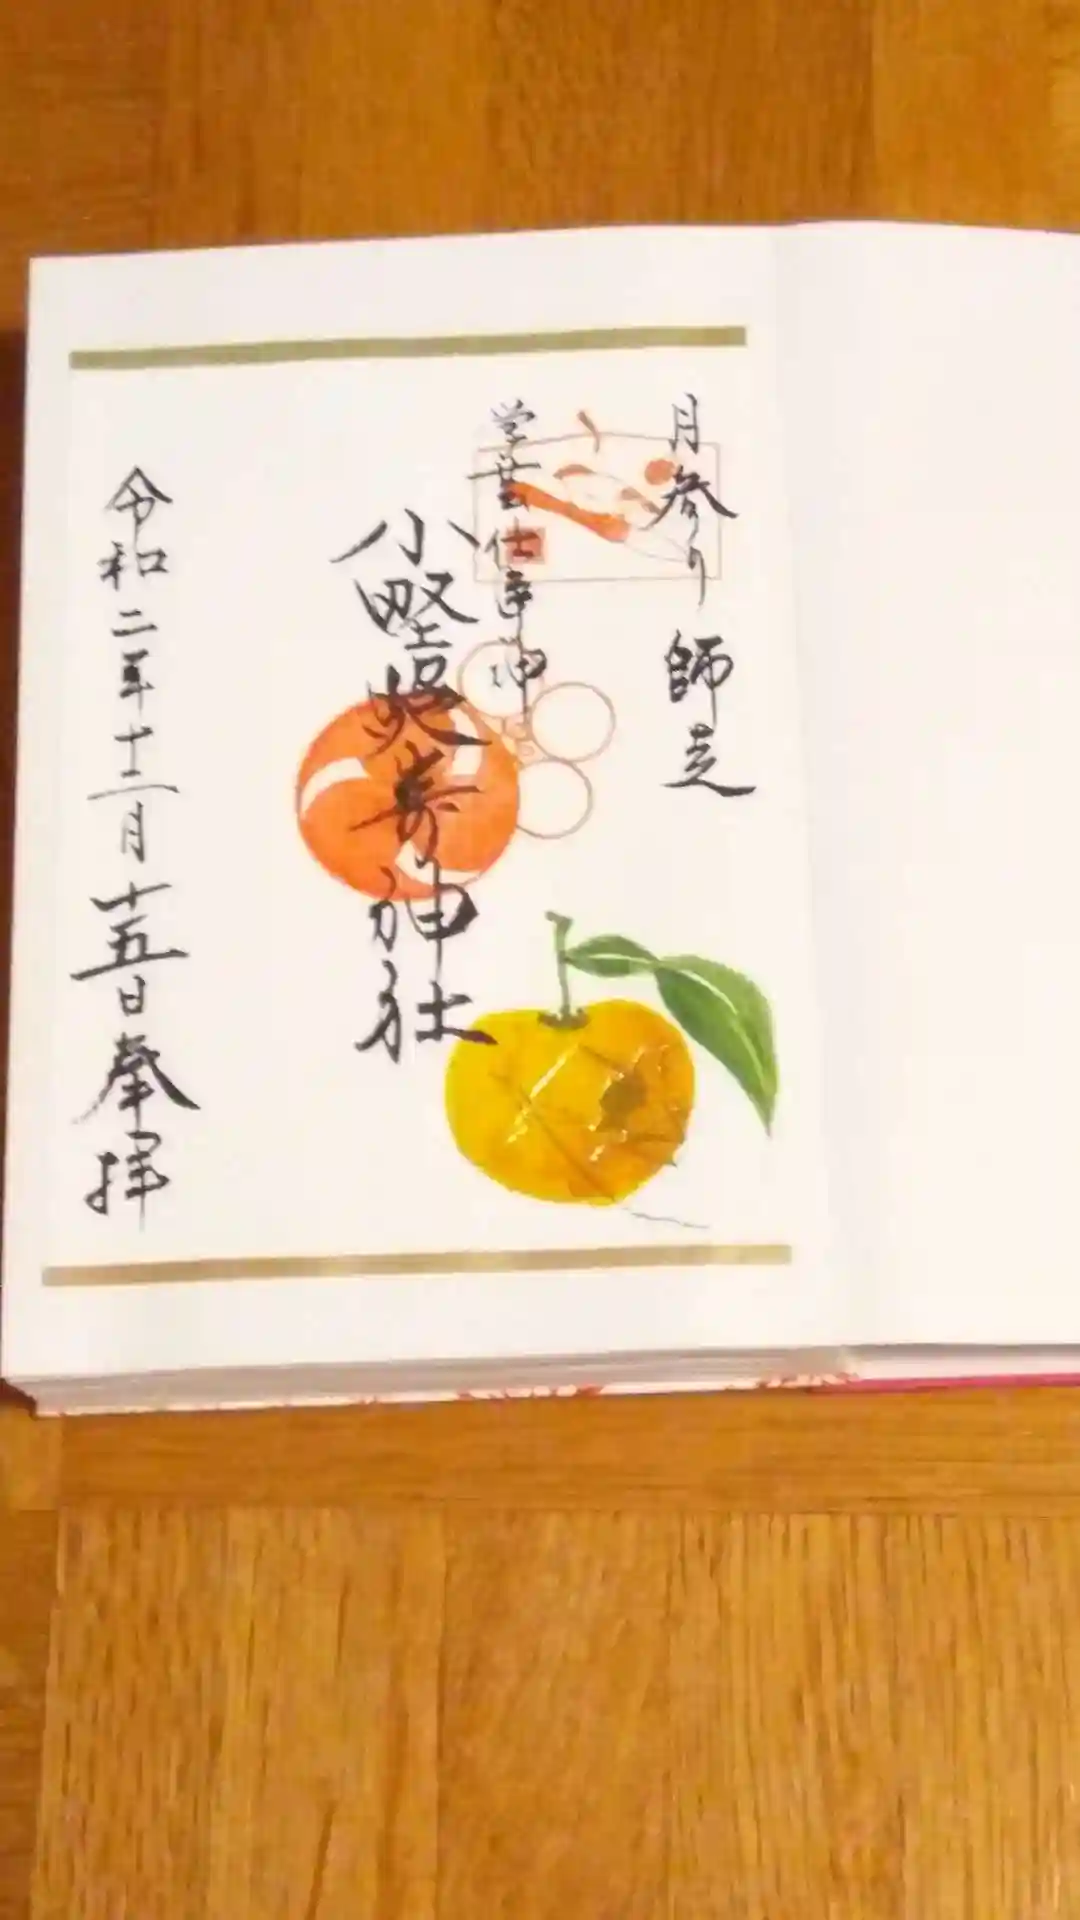 月参り 師走
学芸仕事神
小野照崎神社
令和二年十二月十五日奉拝